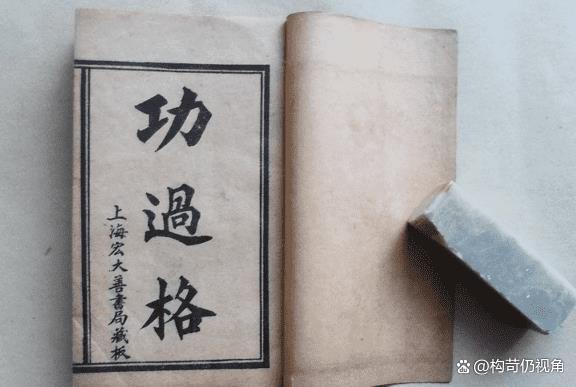 功過格
上海宏大善書局藏板
@构苛仍视角